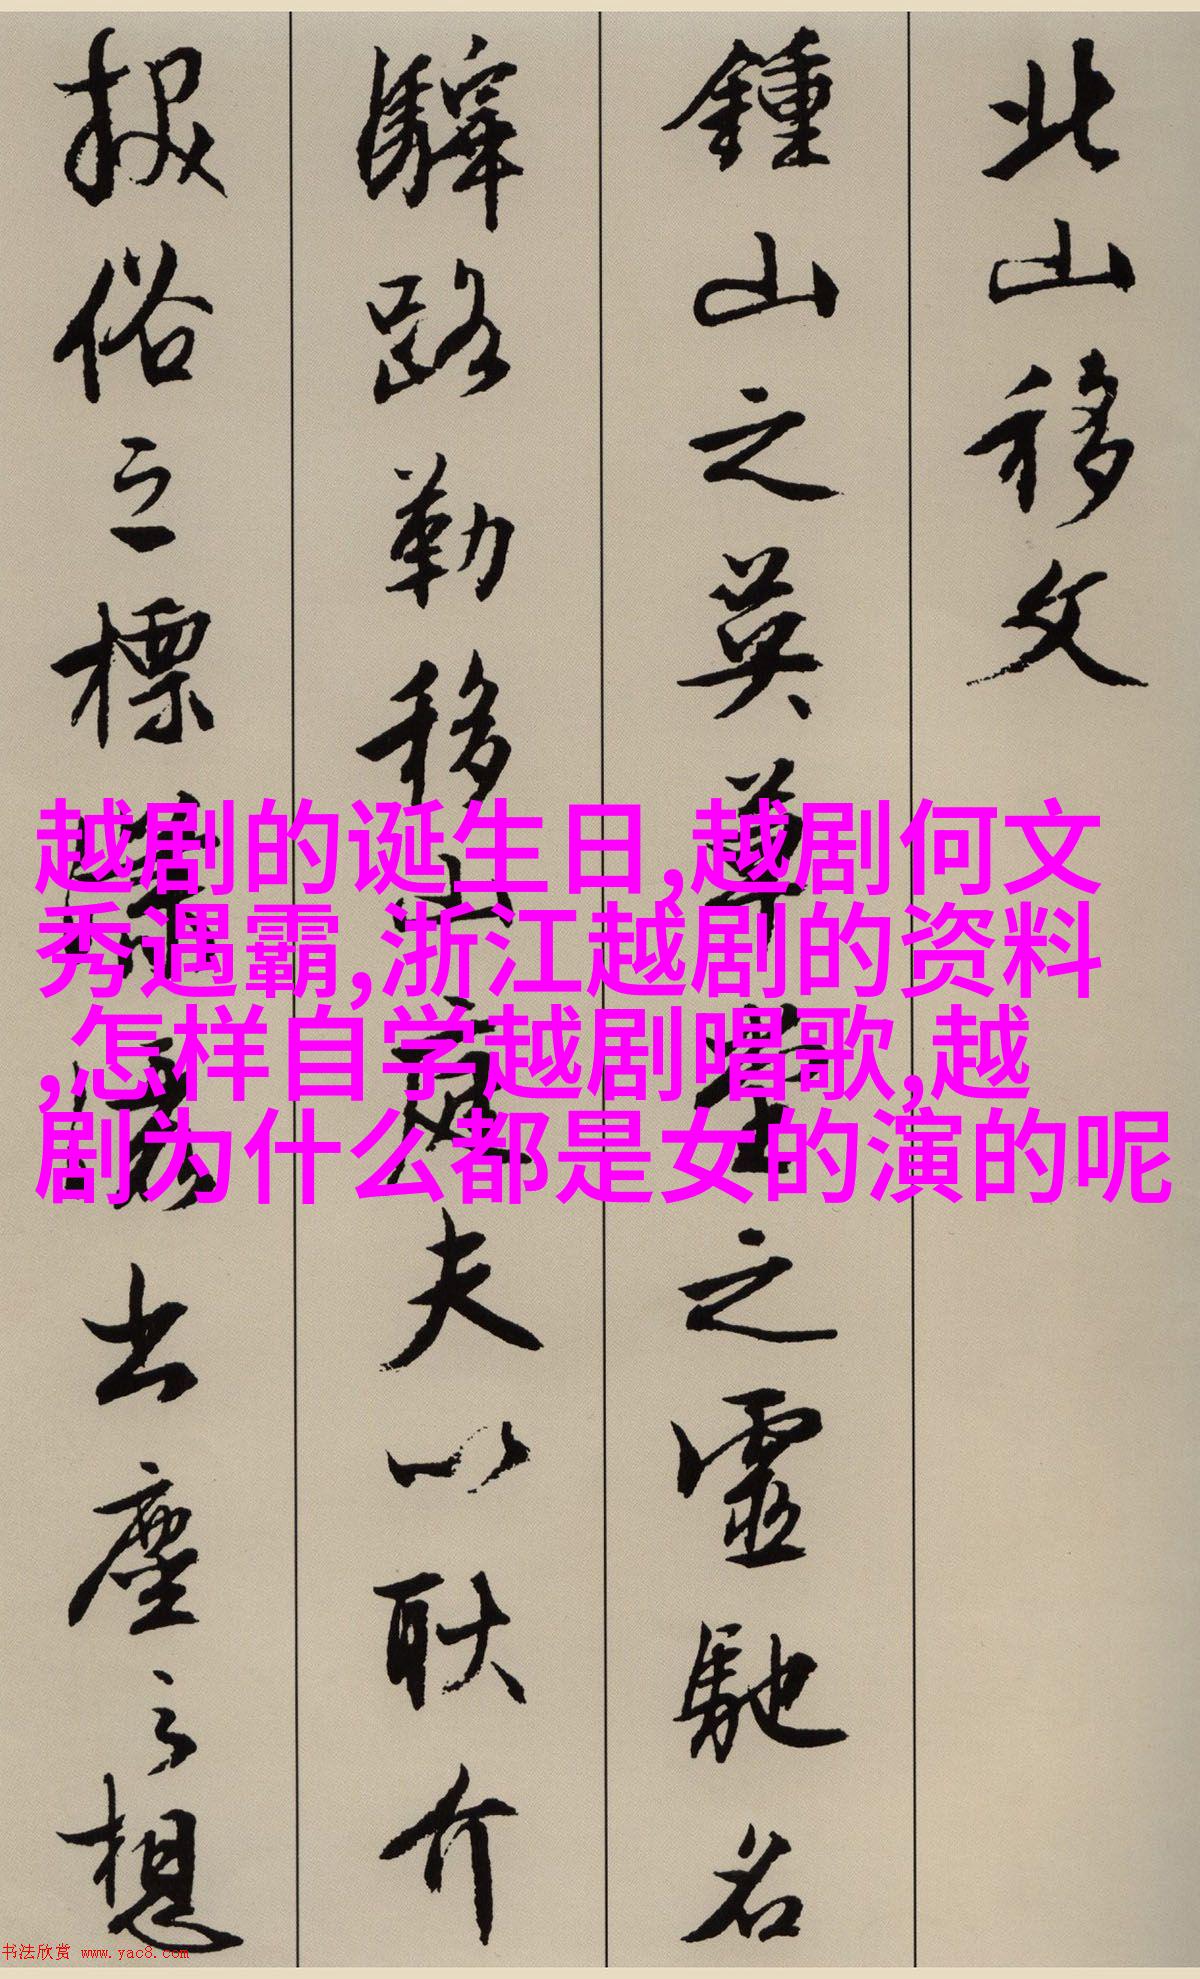 北山移文
鍾山之英之靈馳名
驛路勒移山庭夫以耿介
拔俗之標出塵之想
越剧的诞生日,越剧何文
秀遇霸,浙江越剧的资料
,怎样自学越剧唱歌,越
剧为什么都是女的演的呢
书法欣赏 www.yac8.com